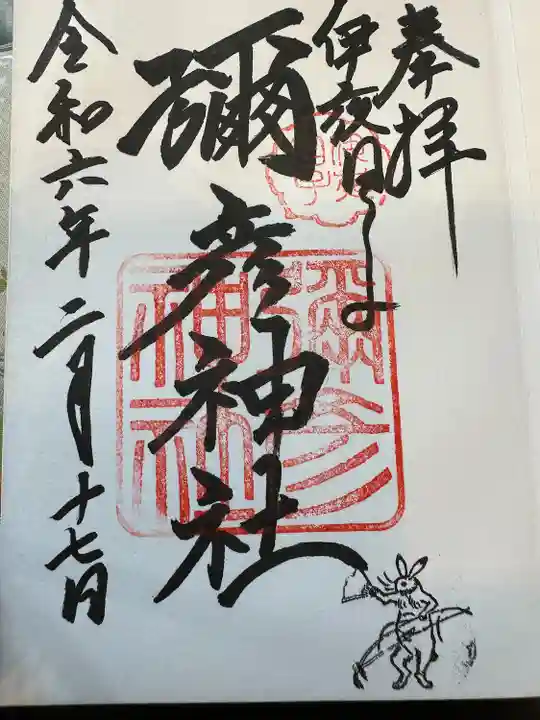 奉拝
伊夜日子
彌彦神社
令和六年二月十七日
彌彦
神社